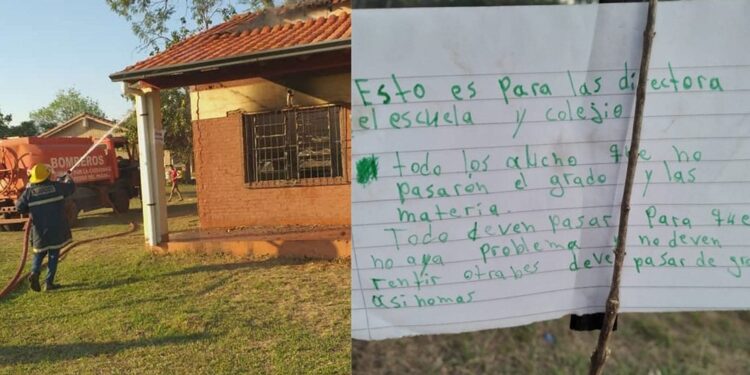 BOMBEROS
Esto es para las directora
el escuela y colegio
todo los alucho que no
pasarón el grado y las
materia.
Todo deven pasar para que
no aya problema y no deven
rentir otrabes deven pasar de gra
asinomas